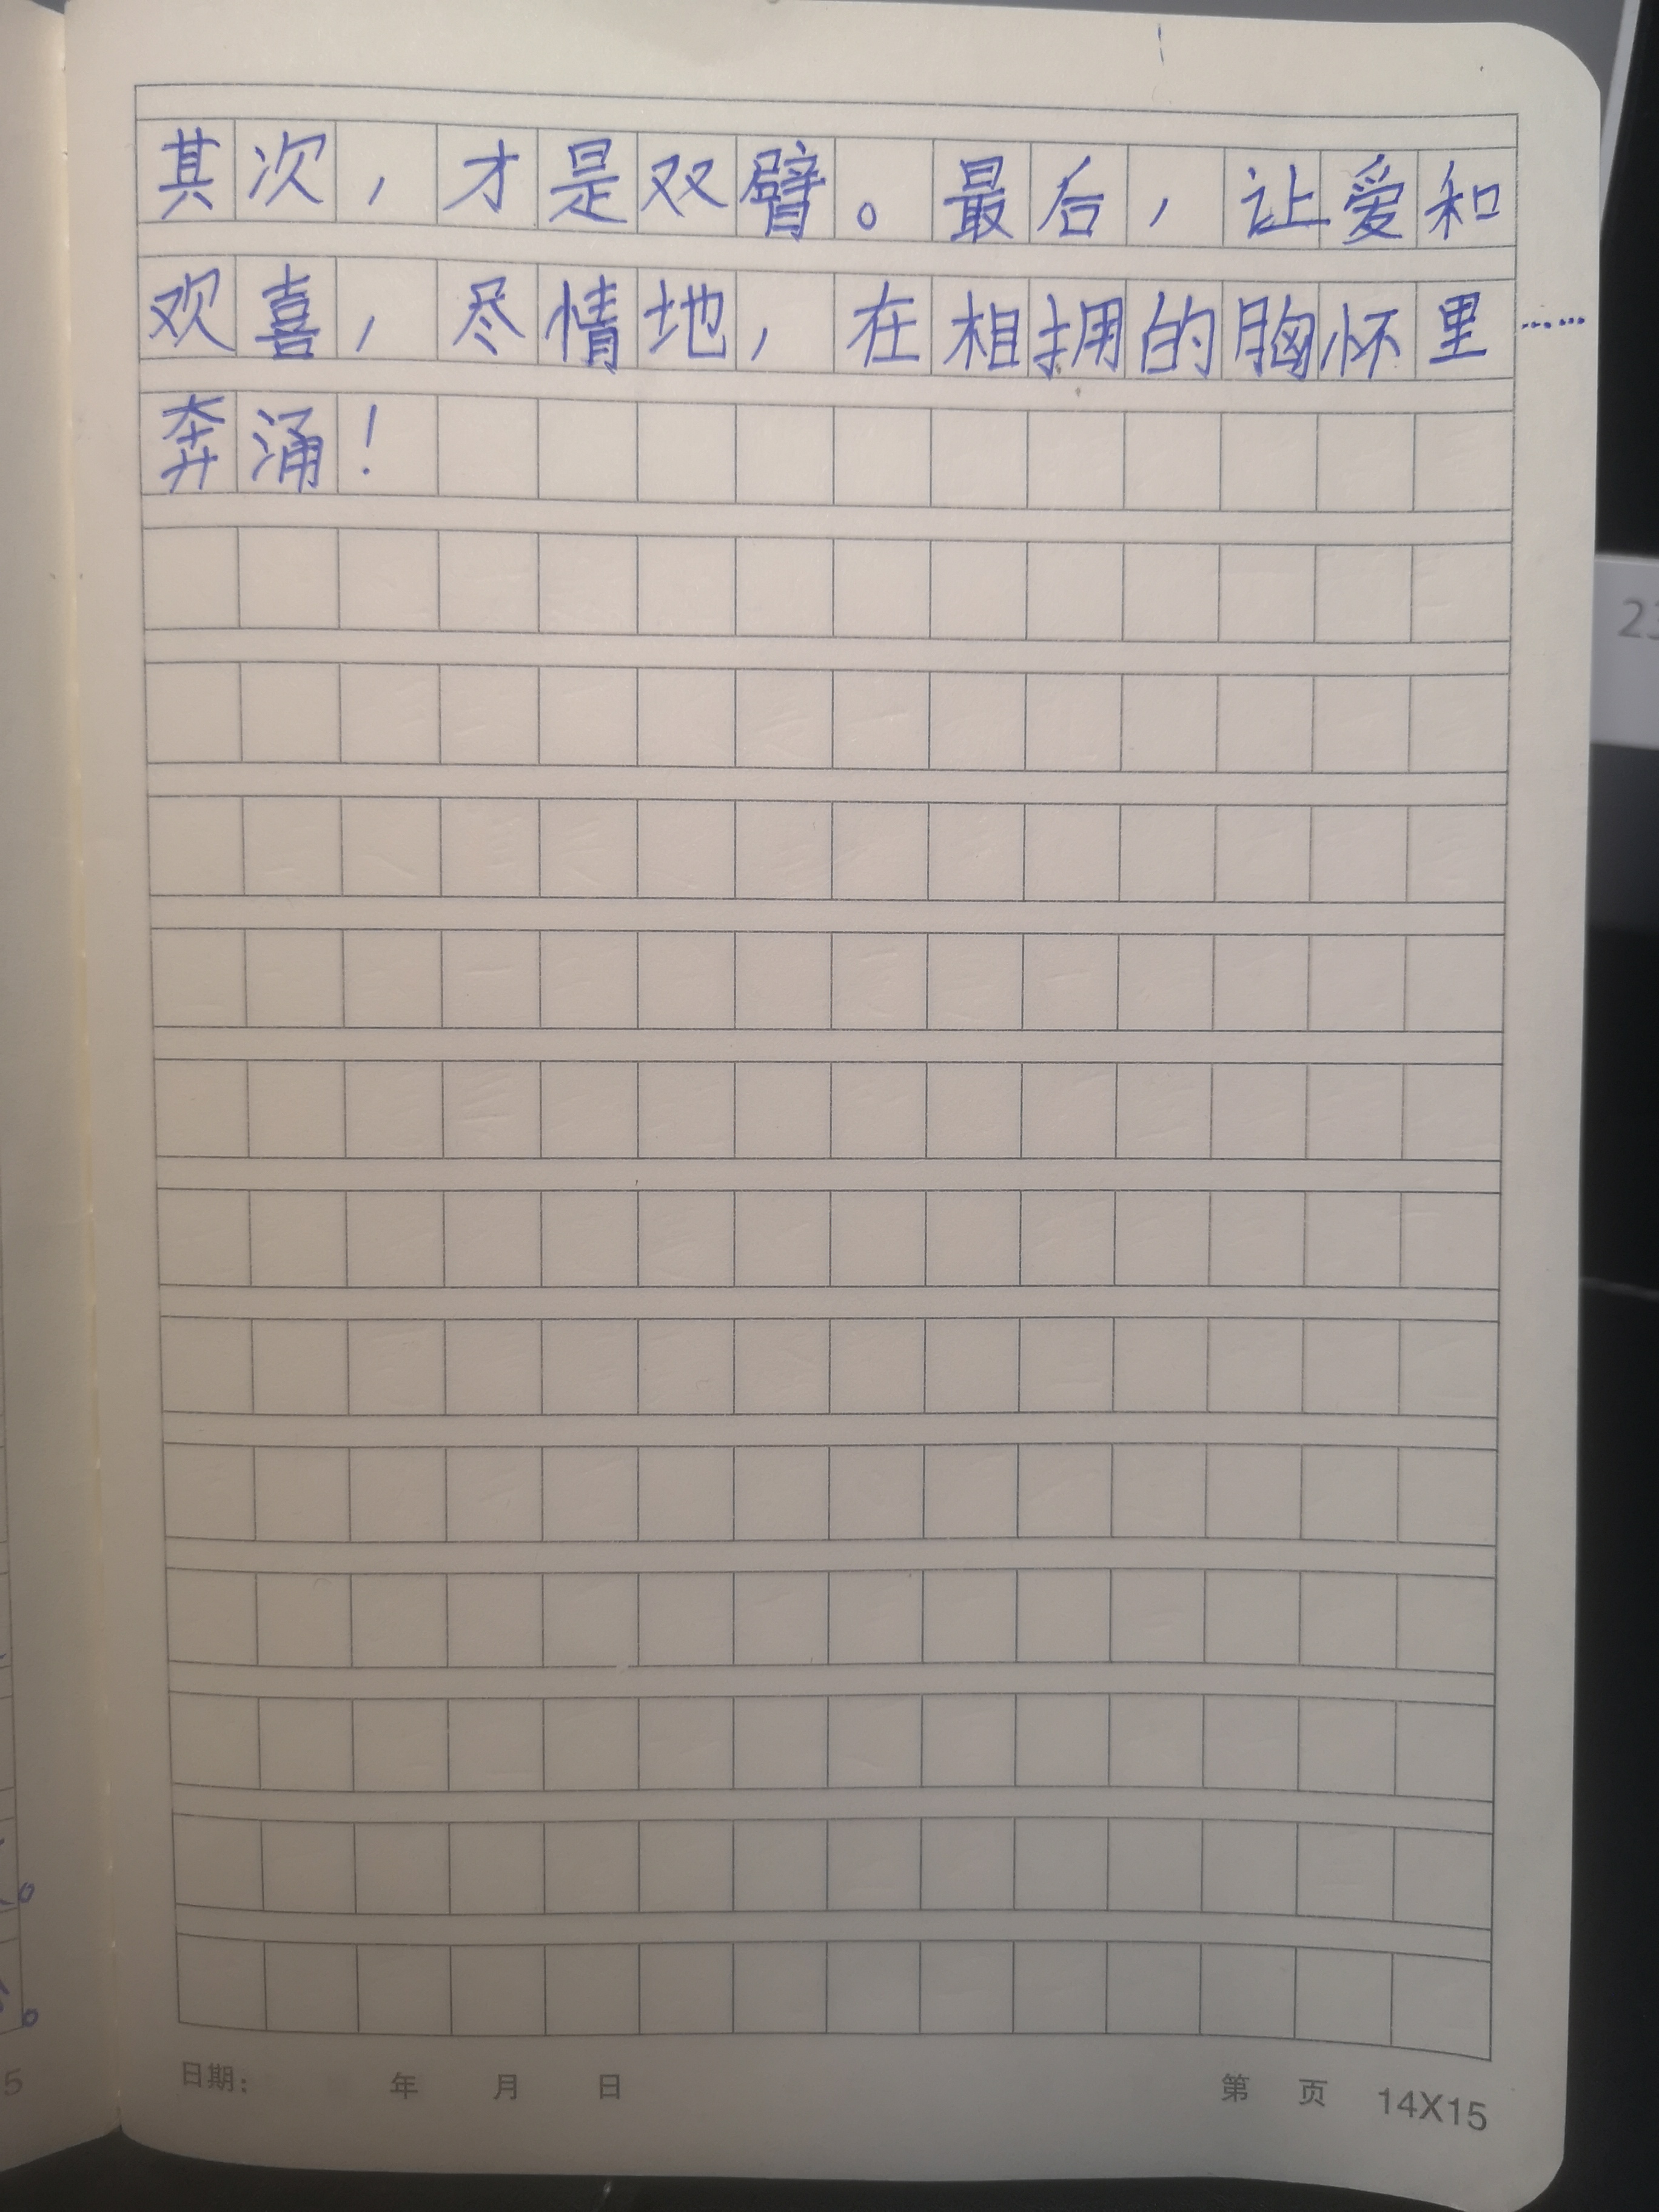 其次，才是双臂。最后，让爱和
欢喜，尽情地，在相拥的胸怀里……
奔涌！
日期： 年 月 日 第 页 14X15